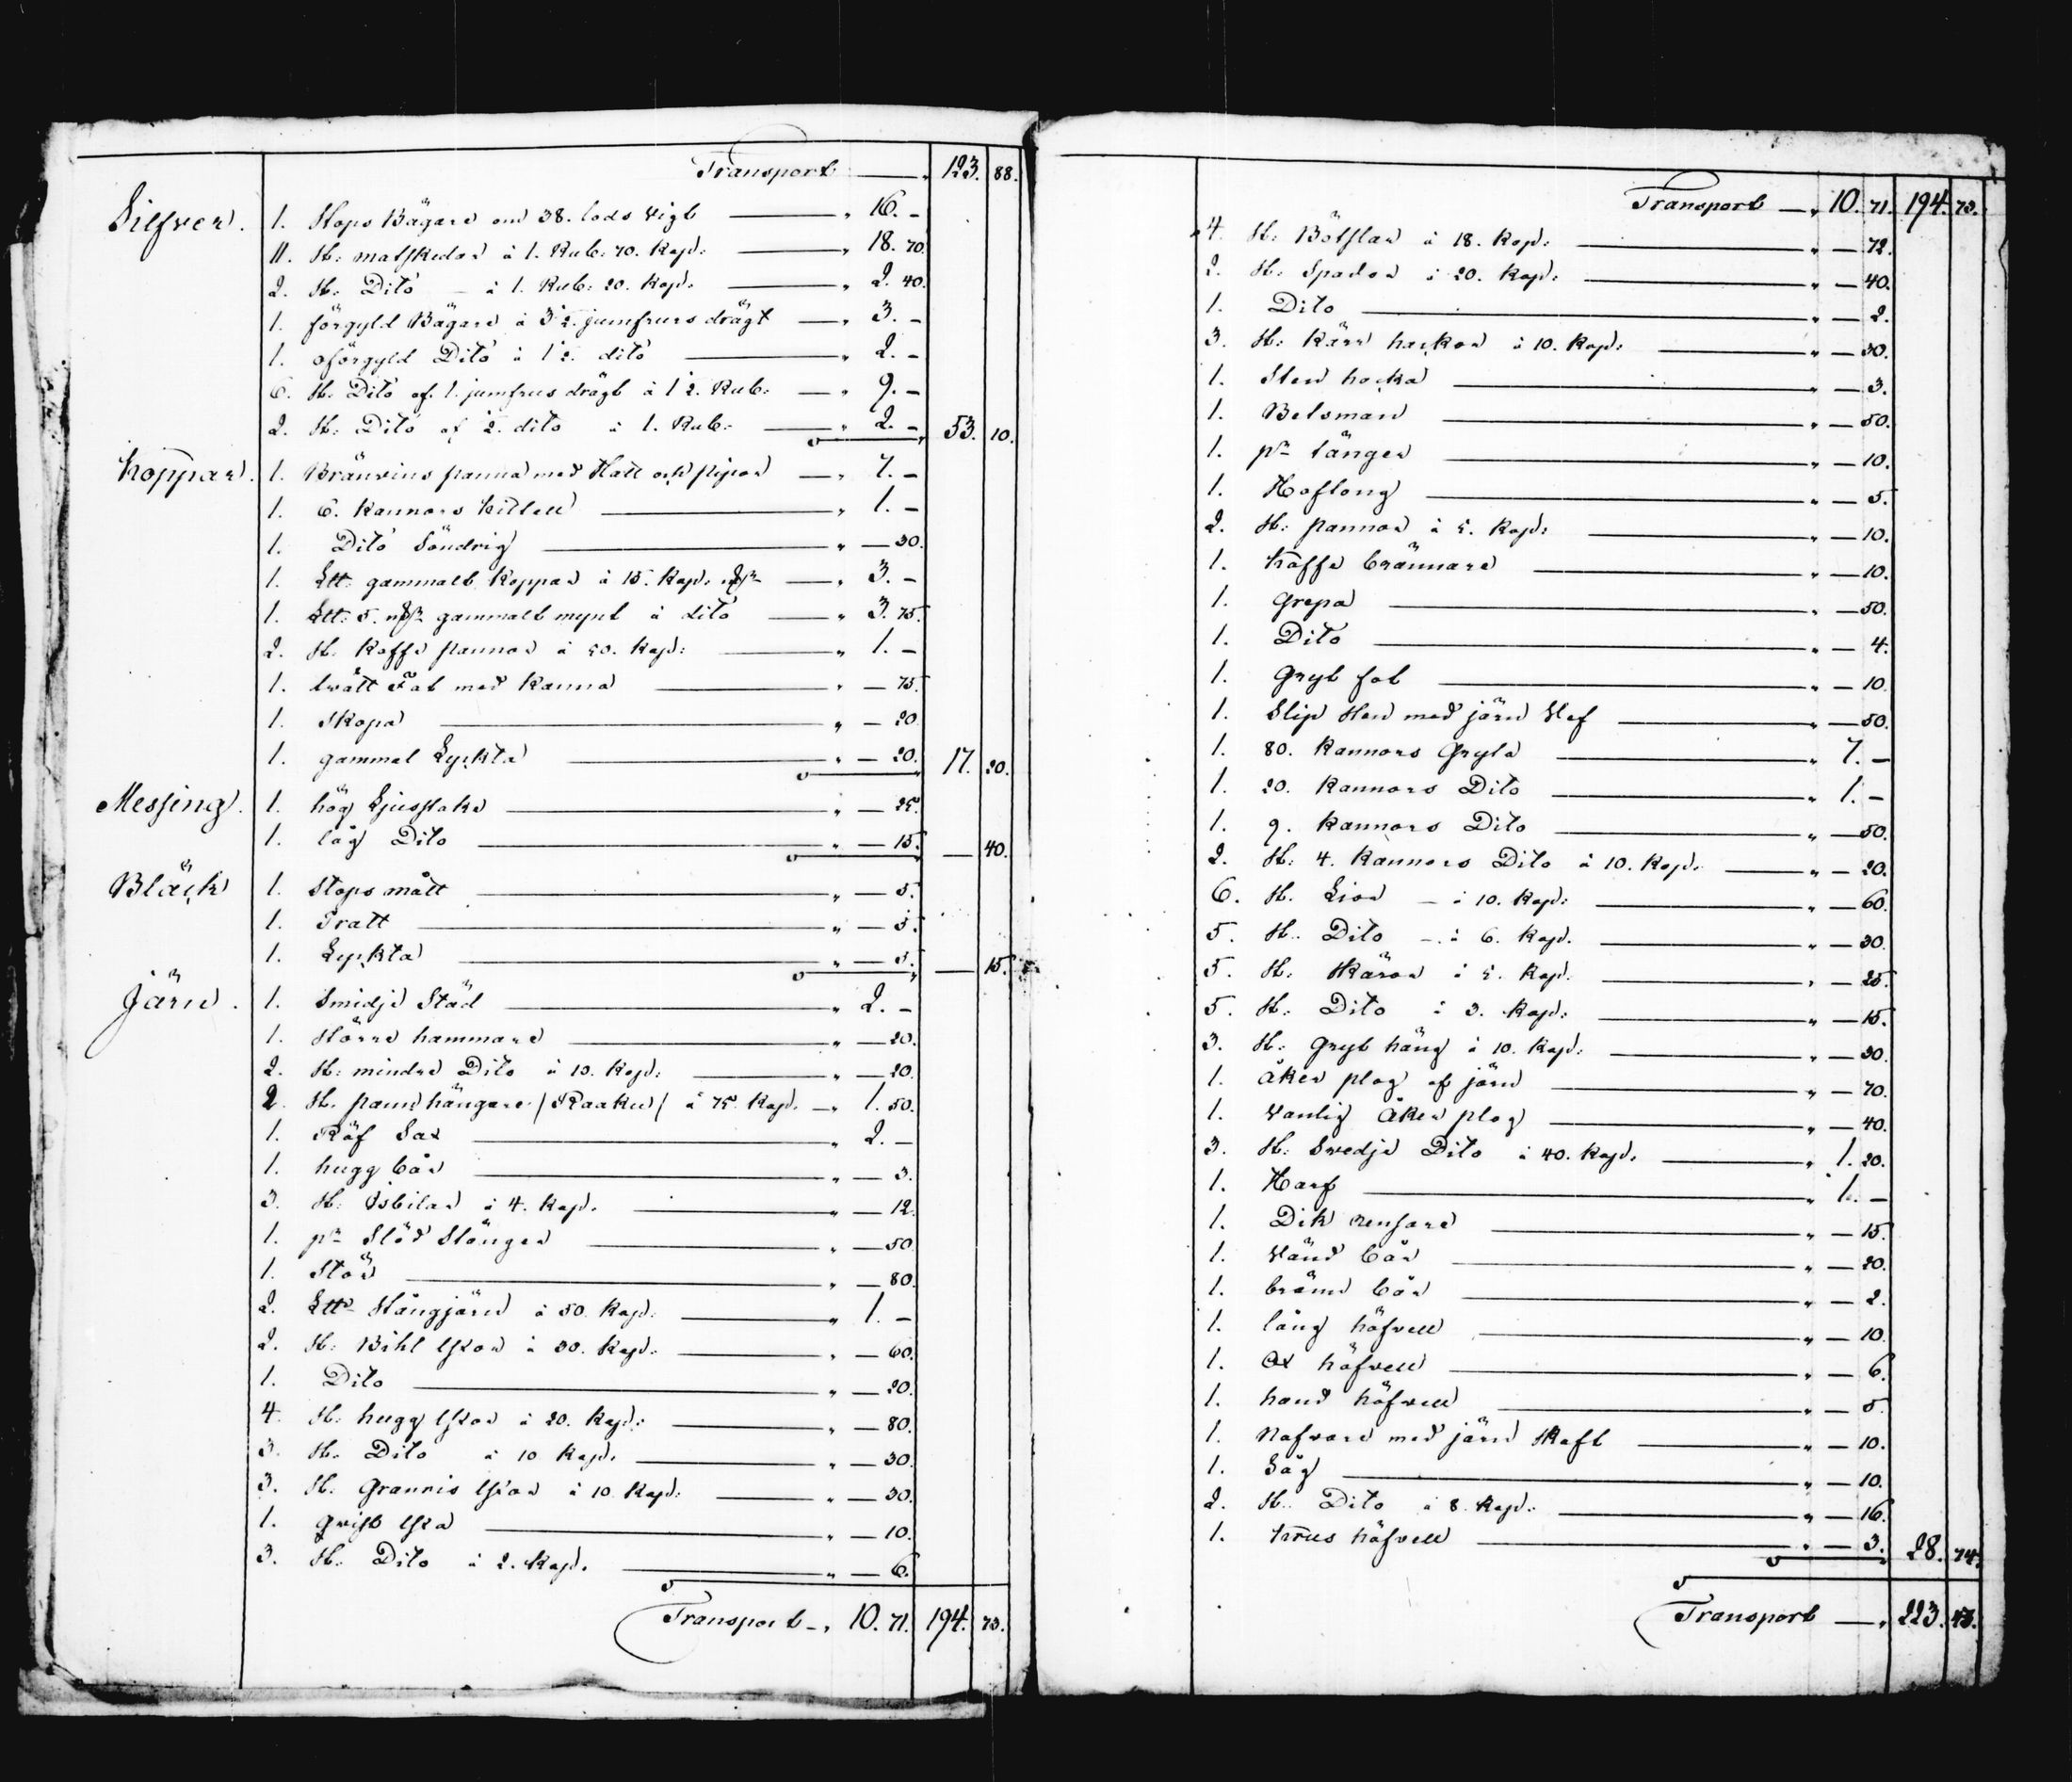 Transport — „ 123. 88.
Silfver. 1. Stops Bägare om 38. lods vigt — „ 16. –
11. St: matskedar à 1. Rub: 70. Kop: — „ 18. 70.
2. St: Dito – à 1. Rub: 20. Kop: — „ 2. 40.
1. förgyld Bägare à 3 1/2. jumfrurs drägt — „ 3. –
1. oförgyld Dito à 1 1/2. dito — „ 2. –
6. St: Dito af 1. jumfrus drägt à 1 1/2. Rub: — „ 9. –
2. St: Dito af 1/2. dito à 1. Rub: — „ 2. – 53. 10.
Koppar. 1. Bränvins panna med Hatt och pipor — „ 7. –
1. 6. Kannors Kittell — „ 1. –
1. Dito Söndrig — „ — 30.
1. Ltt: gammalt Koppar à 15. Kop: — „ 3. –
1. Ltt: 5. gammalt mynt à dito — „ 3. 75.
2. St: Kaffe pannor à 50. Kop: — „ 1. –
1. tvätt Fat med Kanna — „ — 75.
1. Skopa — „ — 20
1. gammal Lyckta — „ — 20. 17. 20.
Messing. 1. hög Ljusstake — „ — 25.
1. låg Dito — „ — 15. — 40.
Bläck 1. Stops mått — „ — 5.
1. Tratt — „ — 5.
1. Lyckta — „ — 5. — 15.
Järn. 1. Smidje Städ — „ 2. –
1. större hammare — „ — 20.
2. St: mindre Dito à 10. Kop: — „ — 20.
2. St: pann hängare / Raaku / à 75. Kop. — „ 1. 50.
1. Räf Sax — „ 2. –
1. hugg bår — „ — 3.
3. St: Isbilar à 4. Kop. — „ — 12
1. pr Städ Stänger — „ — 50
1. Stör — „ — 80.
2. Ltt: Stångjärn à 50. Kop. — „ 1. –
2. St: Bihl Yxor à 30. Kop. — „ — 60.
1. Dito — „ — 20.
4. St: hugg Yxor à 20. Kop: — „ — 80.
3. St: Dito à 10 Kop. — „ — 30.
3. St: Granris Yxor à 10. Kop: — „ — 30.
1. Yxa — „ — 10.
3. St: Dito à 2. Kop. — „ — 6.
Transport – „ 10. 71. 194. 73.
Transport — „ 10. 71. 194. 73.
4. St: Bötslar à 18. Kop: — „ — 72.
2. St: Spador à 20. Kop: — „ — 40.
1. Dito — „ — 2.
3. St: Kärr hackor à 10. Kop: — „ — 30.
1. Sten hacka — „ — 3.
1. Betsman — „ — 50.
1. pr tänger — „ — 10.
1. Hoftong — „ — 5.
2. St: pannor à 5. Kop: — „ — 10.
1. Kaffe brännare — „ — 10.
1. Grepa — „ — 50.
1. Dito — „ — 4.
1. Gryt fat — „ — 10
1. Slip sten med järn Vef — „ — 50.
1. 80. Kannors Gryta — „ 7. –
1. 20. Kannors Dito — „ 1. –
1. 9. Kannors Dito — „ — 50.
2. St: 4. Kannors Dito à 10. Kop: — „ — 20.
6. St. Liar – à 10. Kop: — „ — 60.
5. St. Dito – à 6. Kop. — „ — 30.
5. St: Skäror à 5. Kop. — „ — 25.
5. St: Dito à 3. Kop: — „ — 15.
3. St: Gryt häng à 10. Kop: — „ — 30.
1. Åker plog af järn — „ — 70.
1. Vanlig Åker plog — „ — 40.
3. St: Svedje Dito à 40. Kop. — „ 1. 20.
1. Harf — „ 1. –
1. Dik rensare — „ — 15.
1. Vänd bår — „ — 20.
1. bränn bår — „ — 2.
1. lång höfvell — „ — 10.
1. Ox höfvell — „ — 6.
1. hand höfvell — „ — 5.
1. Nafvare med järn skaft — „ — 10.
1. Såg — „ — 10.
2. St: Dito à 8. Kop: — „ — 16.
1. Krus höfvell — „ — 3. 28. 74.
Transport — „ 223. 43.